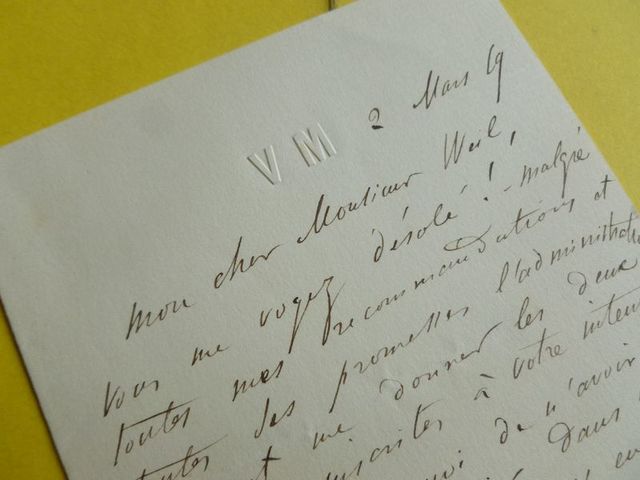 VM
2 Mars 69
Mon cher Monsieur Weil,
Vous me voyez désolé ! - malgré
toutes mes recommandations et
toutes des promesses l'administrat
me donner les deux
à votre inten
de n'avoir
Dans
en